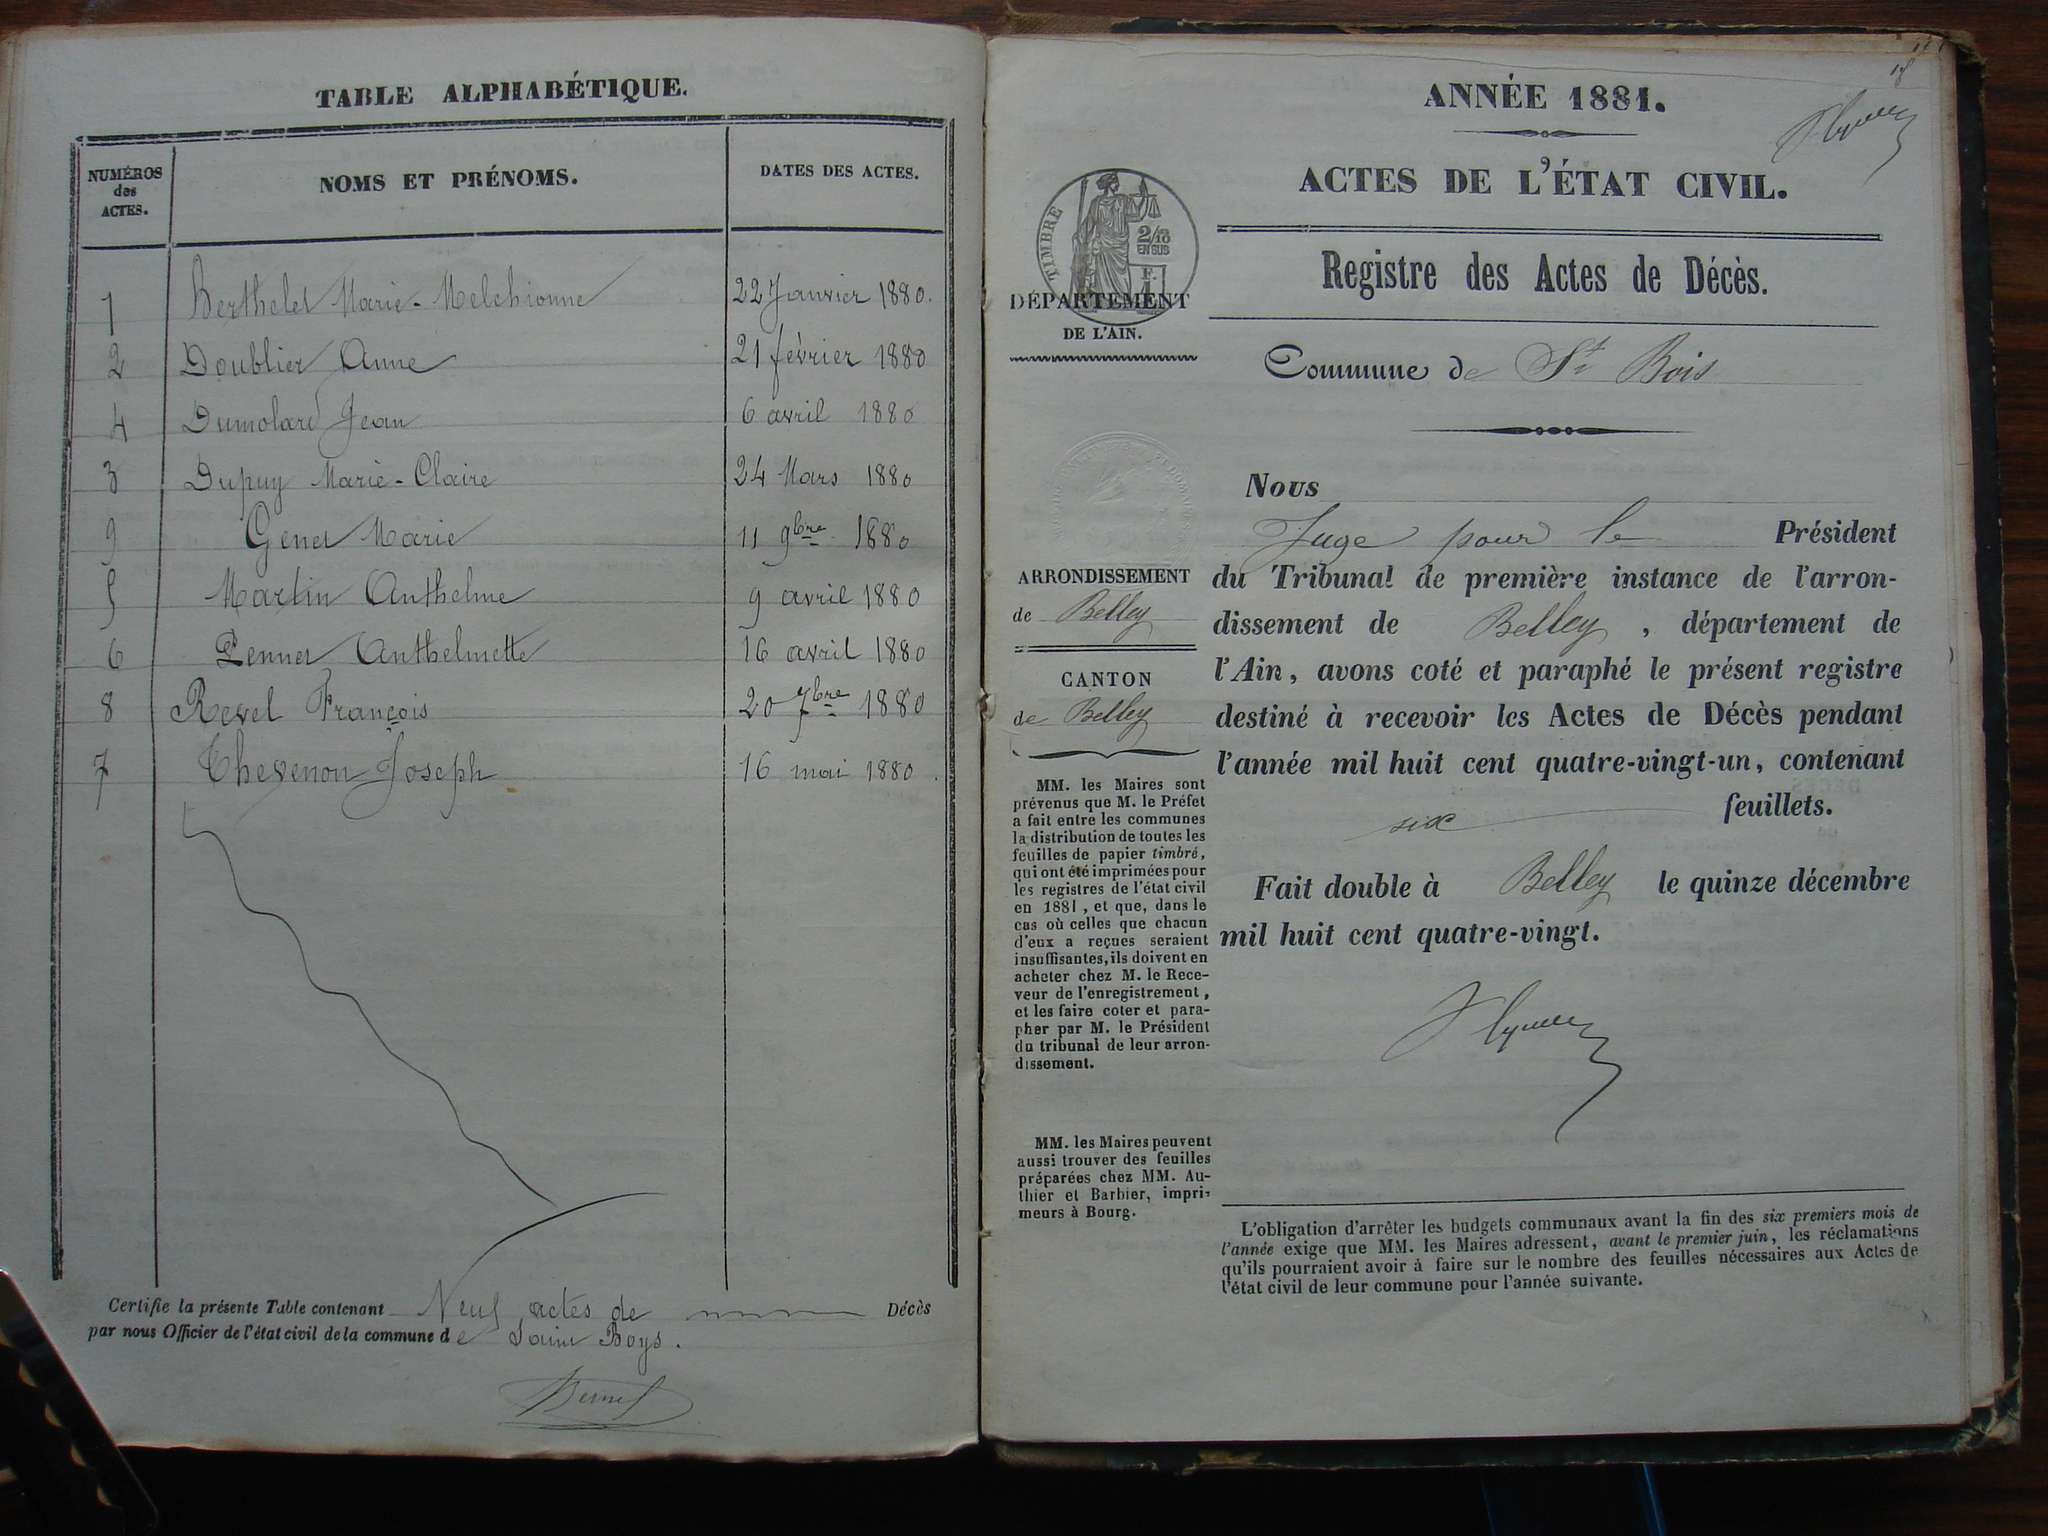 TABLE ALPHABÉTIQUE.
NUMÉROS des ACTES. NOMS ET PRÉNOMS. DATES DES ACTES.
1 Berthelet Marie-Melchionne 22 Janvier 1880.
2 Doublier Anne 21 février 1880
4 Dumolard Jean 6 avril 1880
3 Dupuy Marie-Claire 24 Mars 1880
9 Genet Marie 11 9bre 1880
5 Martin Anthelme 9 avril 1880
6 Pennet Anthelmette 16 avril 1880
8 Revel François 20 7bre 1880
7 Thevenon Joseph 16 mai 1880.
Certifié la présente Table contenant Neuf actes de Décès
par nous Officier de l'état civil de la commune de Saint Boys.
ANNÉE 1881.
ACTES DE L'ÉTAT CIVIL.
Registre des Actes de Décès.
TIMBRE
2/10
EN SUS
DÉPARTEMENT
DE L'AIN.
Commune de St Bois
ARRONDISSEMENT
de Belley
CANTON
de Belley
MM. les Maires sont
prévenus que M. le Préfet
a fait entre les communes
la distribution de toutes les
feuilles de papier timbré,
qui ont été imprimées pour
les registres de l'état civil
en 1881, et que, dans le
cas où celles que chacun
d'eux a reçues seraient
insuffisantes, ils doivent en
acheter chez M. le Rece-
veur de l'enregistrement,
et les faire coter et para-
pher par M. le Président
du tribunal de leur arron-
dissement.
MM. les Maires peuvent
aussi trouver des feuilles
préparées chez MM. Au-
thier et Barbier, impri-
meurs à Bourg.
Nous
Juge pour le Président
du Tribunal de première instance de l'arron-
dissement de Belley, département de
l'Ain, avons coté et paraphé le présent registre
destiné à recevoir les Actes de Décès pendant
l'année mil huit cent quatre-vingt-un, contenant
six feuillets.
Fait double à Belley le quinze décembre
mil huit cent quatre-vingt.
L'obligation d'arrêter les budgets communaux avant la fin des six premiers mois de
l'année exige que MM. les Maires adressent, avant le premier juin, les réclamations
qu'ils pourraient avoir à faire sur le nombre des feuilles nécessaires aux Actes de
l'état civil de leur commune pour l'année suivante.